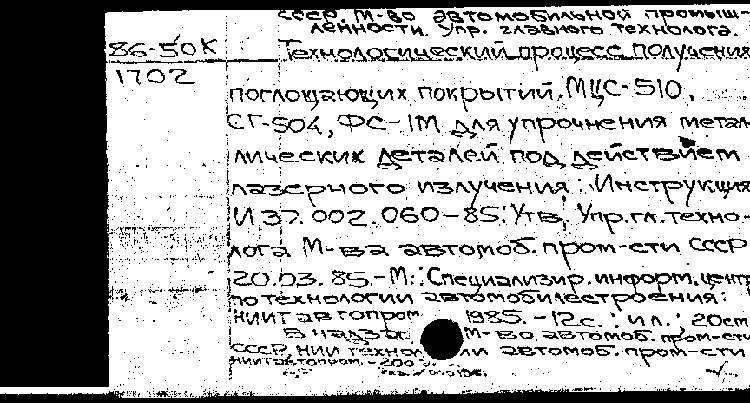 СССР. М-во автомобильной промыш-
ленности. Упр. главного технолога.
86-50К Технологический процесс получения
1702
поглощающих покрытий МЦС-510,
СГ-504, ФС-1М для упрочнения метал-
лических деталей под действием
лазерного излучения: Инструкция
И 37.002.060-85: Утв. Упр. гл. техно-
лога М-ва автомоб. пром-сти СССР
20.03.85.-М.: Специализир. информ. центр
по технологии автомобилестроения:
НИИТавтопром 1985.-12с.: ил.; 20см
В надзаг. М-во автомоб. пром-сти
СССР, НИИ технологии автомоб. пром-сти
НИИТавтопром.-200